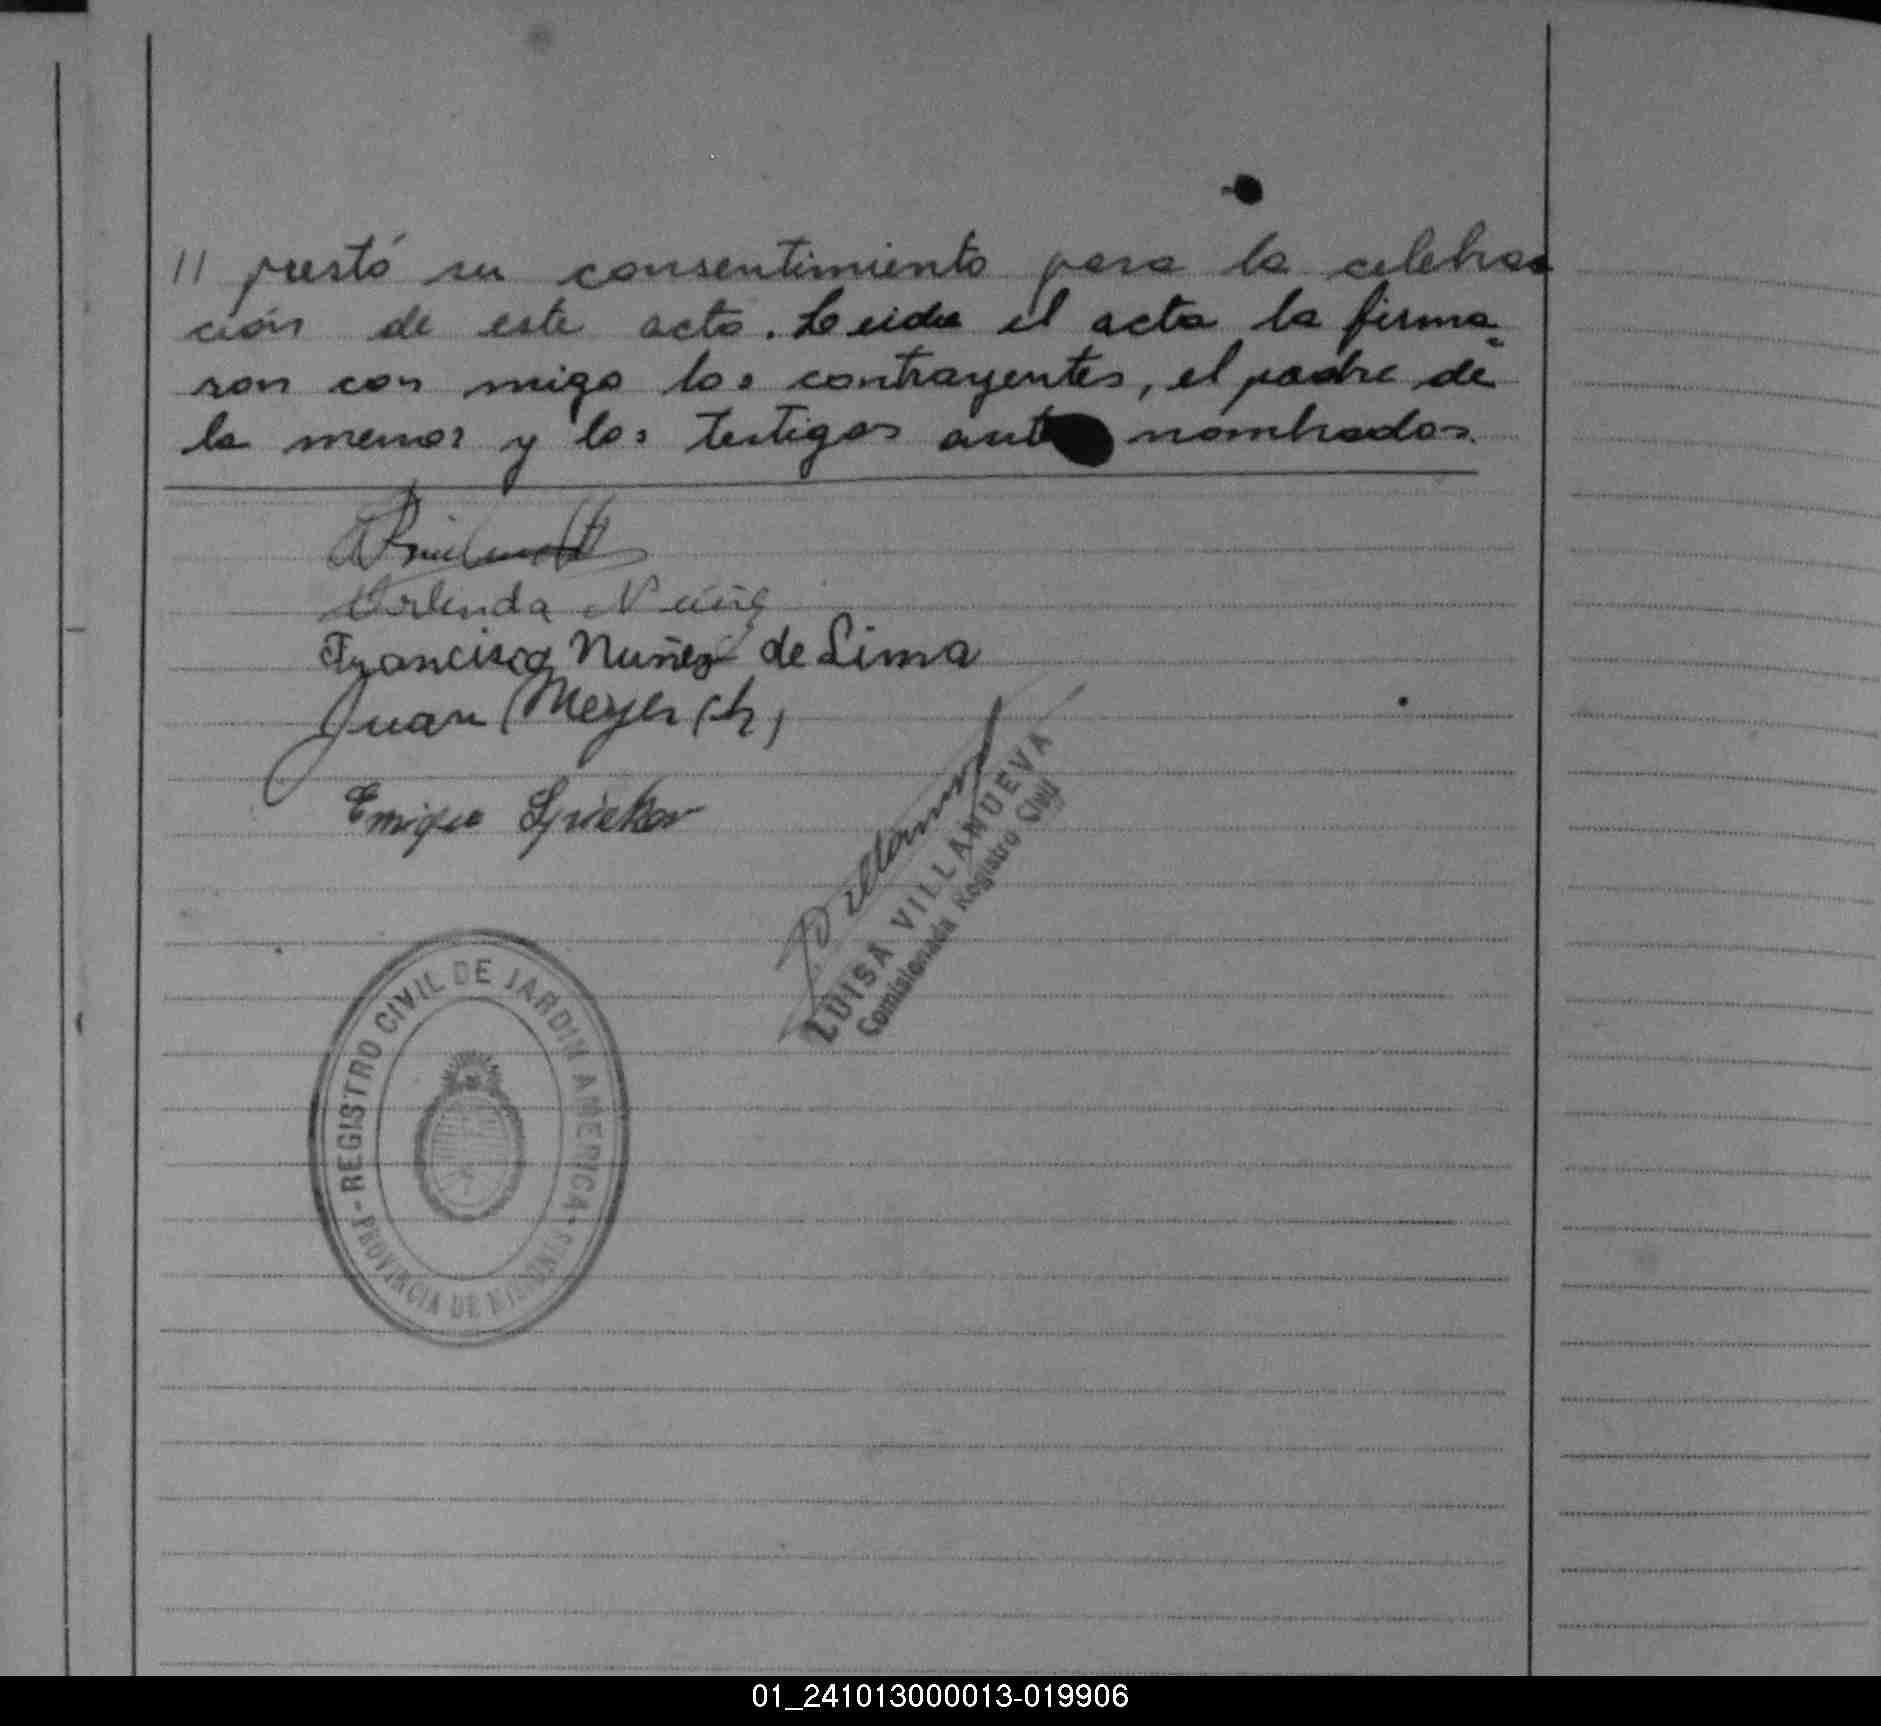 // prestó su consentimiento para la celebra
ción de este acto. Leida el acta la firma
ron con migo los contrayentes, el padre de
la menor y los testigos ante nombrados.
Orlinda Nuñez
Francisco Nuñez de Lima
Juan Meyer (h)
Enrique Spieker
LUISA VILLANUEVA
Comisionada Registro Civil
- REGISTRO CIVIL DE JARDIN AMERICA -
PROVINCIA DE MISIONES
01_241013000013-019906